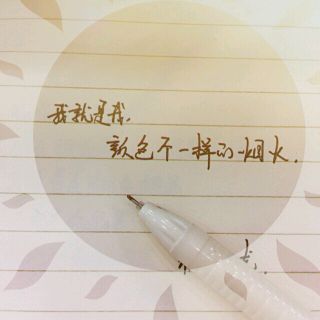 我就是我,
颜色不一样的烟火.